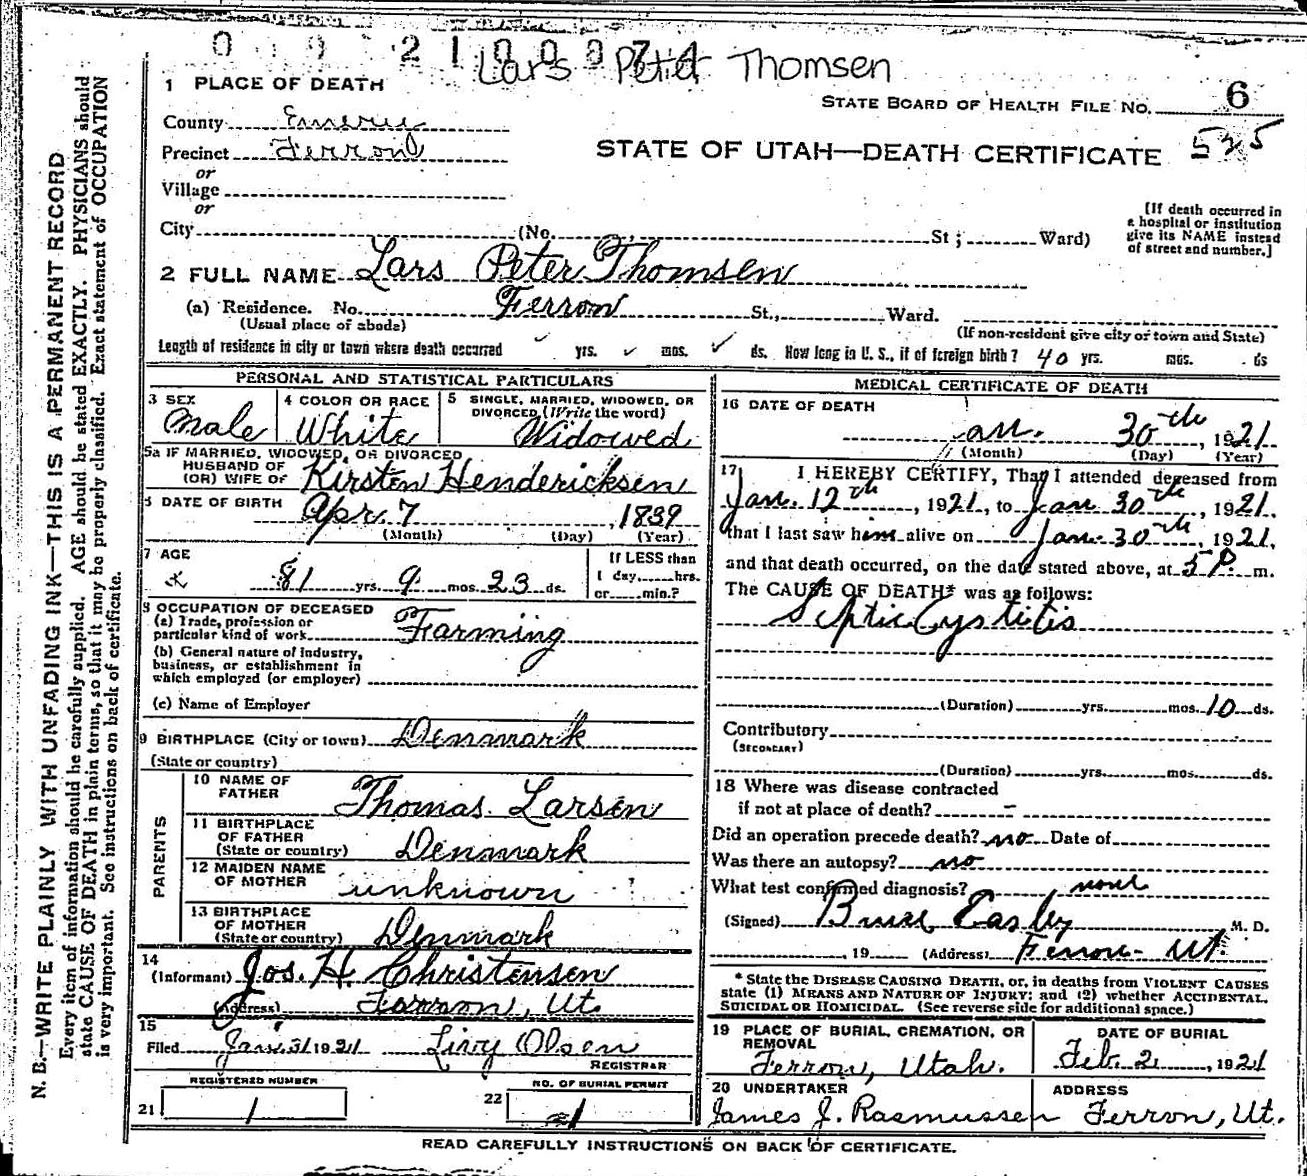 0 0 2 1 0 0 0 7 4
Lars Peter Thomsen
1 PLACE OF DEATH
STATE BOARD OF HEALTH FILE NO. 6
County Emery
525
Precinct Ferron
STATE OF UTAH—DEATH CERTIFICATE
or
Village
or
City (No. St; Ward)
[If death occurred in
a hospital or institution
give its NAME instead
of street and number.]
2 FULL NAME Lars Peter Thomsen
(a) Residence. No. Ferron St., Ward.
(Usual place of abode)
(If non-resident give city or town and State)
Length of residence in city or town where death occurred yrs. mos. ds. How long in U. S., if of foreign birth? 40 yrs. mos. ds
PERSONAL AND STATISTICAL PARTICULARS
3 SEX
Male
4 COLOR OR RACE
White
5 SINGLE, MARRIED, WIDOWED, OR
DIVORCED (Write the word)
Widowed
5a IF MARRIED, WIDOWED, OR DIVORCED
HUSBAND OF
(OR) WIFE OF Kirsten Hendericksen
6 DATE OF BIRTH
Apr. 7, 1839
(Month) (Day) (Year)
7 AGE
81 yrs. 9 mos. 23 ds.
If LESS than
1 day, hrs.
or min.?
8 OCCUPATION OF DECEASED
(a) Trade, profession or
particular kind of work Farming
(b) General nature of industry,
business, or establishment in
which employed (or employer)
(c) Name of Employer
9 BIRTHPLACE (City or town) Denmark
(State or country)
PARENTS
10 NAME OF
FATHER Thomas Larsen
11 BIRTHPLACE
OF FATHER
(State or country) Denmark
12 MAIDEN NAME
OF MOTHER unknown
13 BIRTHPLACE
OF MOTHER
(State or country) Denmark
14
(Informant) Jos. H Christensen
(Address) Ferron, Ut.
15
Filed Jan. 31 1921 Livy Olsen
REGISTRAR
REGISTERED NUMBER
21 1
NO. OF BURIAL PERMIT
22 1
MEDICAL CERTIFICATE OF DEATH
16 DATE OF DEATH
Jan. 30th, 1921
(Month) (Day) (Year)
17 I HEREBY CERTIFY, That I attended deceased from
Jan. 12th, 1921, to Jan 30th, 1921,
that I last saw him alive on Jan. 30th, 1921,
and that death occurred, on the date stated above, at 5 P. m.
The CAUSE OF DEATH* was as follows:
Septic Cystitis
(Duration) yrs. mos. 10 ds.
Contributory
(SECONDARY)
(Duration) yrs. mos. ds.
18 Where was disease contracted
if not at place of death? –
Did an operation precede death? no Date of
Was there an autopsy? no
What test confirmed diagnosis? none
(Signed) Bruce Easley M. D.
, 19 (Address) Ferron - Ut.
* State the DISEASE CAUSING DEATH, or, in deaths from VIOLENT CAUSES
state (1) MEANS AND NATURE OF INJURY; and (2) whether ACCIDENTAL,
SUICIDAL OR HOMICIDAL. (See reverse side for additional space.)
19 PLACE OF BURIAL, CREMATION, OR
REMOVAL
Ferron, Utah.
DATE OF BURIAL
Feb. 2, 1921
20 UNDERTAKER
James J. Rasmussen
ADDRESS
Ferron, Ut.
READ CAREFULLY INSTRUCTIONS ON BACK OF CERTIFICATE.
N. B.—WRITE PLAINLY WITH UNFADING INK—THIS IS A PERMANENT RECORD
Every item of information should be carefully supplied. AGE should be stated EXACTLY. PHYSICIANS should
state CAUSE OF DEATH in plain terms, so that it may be properly classified. Exact statement of OCCUPATION
is very important. See instructions on back of certificate.